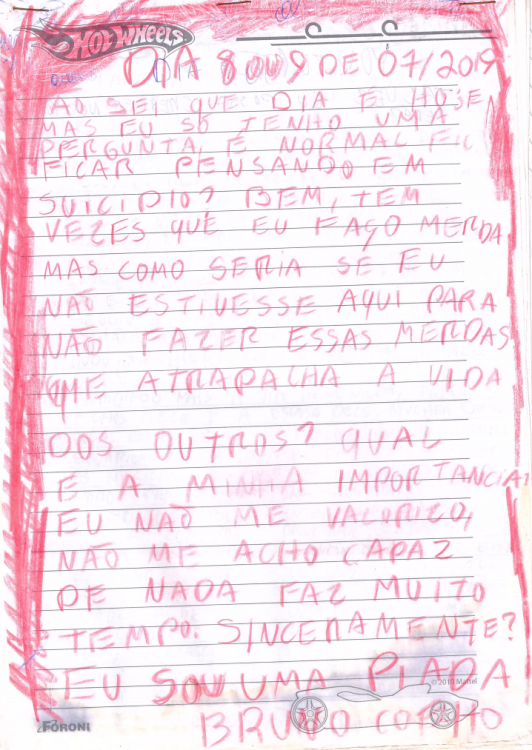 HOT WHEELS
DIA 8 OU 9 DE 07/2019
NAO SEI QUE DIA E HOSE
MAS EU SÓ TENHO UMA
PERGUNTA, E NORMAL FIC
FICAR PENSANDO EM
SUICIDIO? BEM, TEM
VEZES QUE EU FAÇO MERDA
MAS COMO SERIA SE EU
NÃO ESTIVESSE AQUI PARA
NÃO FAZER ESSAS MERDAS
QUE ATRAPALHA A VIDA
DOS OUTROS? QUAL
E A MINHA IMPORTANCIA?
EU NÃO ME VALORIZO,
NÃO ME ACHO CAPAZ
DE NADA FAZ MUITO
TEMPO. SINCERAMENTE?
EU SOU UMA PIADA
© 2010 Mattel
FORONI
BRUNO COELHO